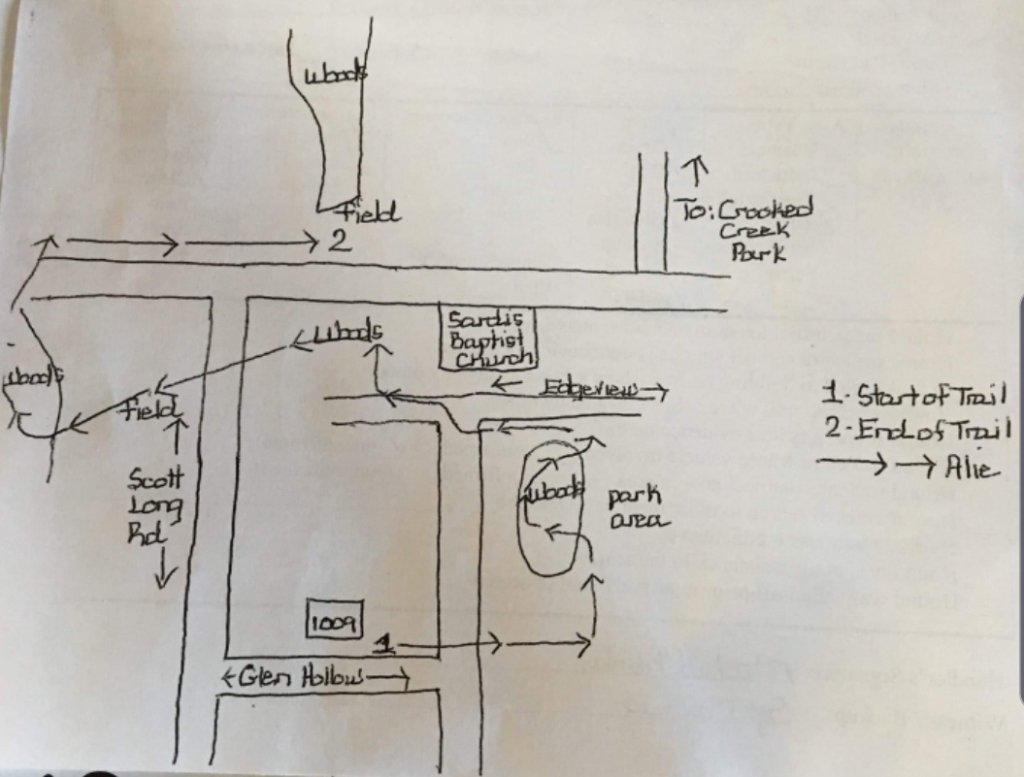 Woods
Field
2
To: Crooked
Creek
Park
Woods
Sardis
Baptist
Church
Edgeview
Woods
Field
1-Start of Trail
2-End of Trail
Alie
Scott
Long
Rd
Woods
park
area
1009
1
Glen Hollow